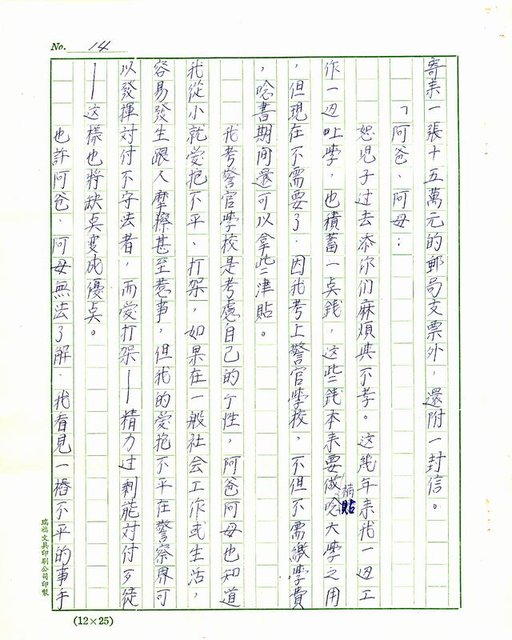 No. 14
寄来一張十五萬元的郵局支票外，還附一封信。
「阿爸、阿母：
恕児子过去添你们麻煩與不孝。这幾年来我一边工
作一边吐学，也積蓄一点錢，这些錢本来要做補貼唸大学之用
，但現在不需要了，因我考上警官学校，不但不需繳学費
，唸書期间還可以拿些津貼。
我考警官学校是考慮自己的个性，阿爸阿母也知道
我从小就爱抱不平、打架，如果在一般社会工作或生活，
容易發生跟人摩擦甚至惹事，但我的爱抱不平在警察界可
以發揮対付不守法者，而爱打架——精力过剩能対付歹徒
——这樣也將缺点变成優点。
也許阿爸、阿母無法了解，我看見一樁不平的事手
瑞福文具印刷公司印製
(12×25)